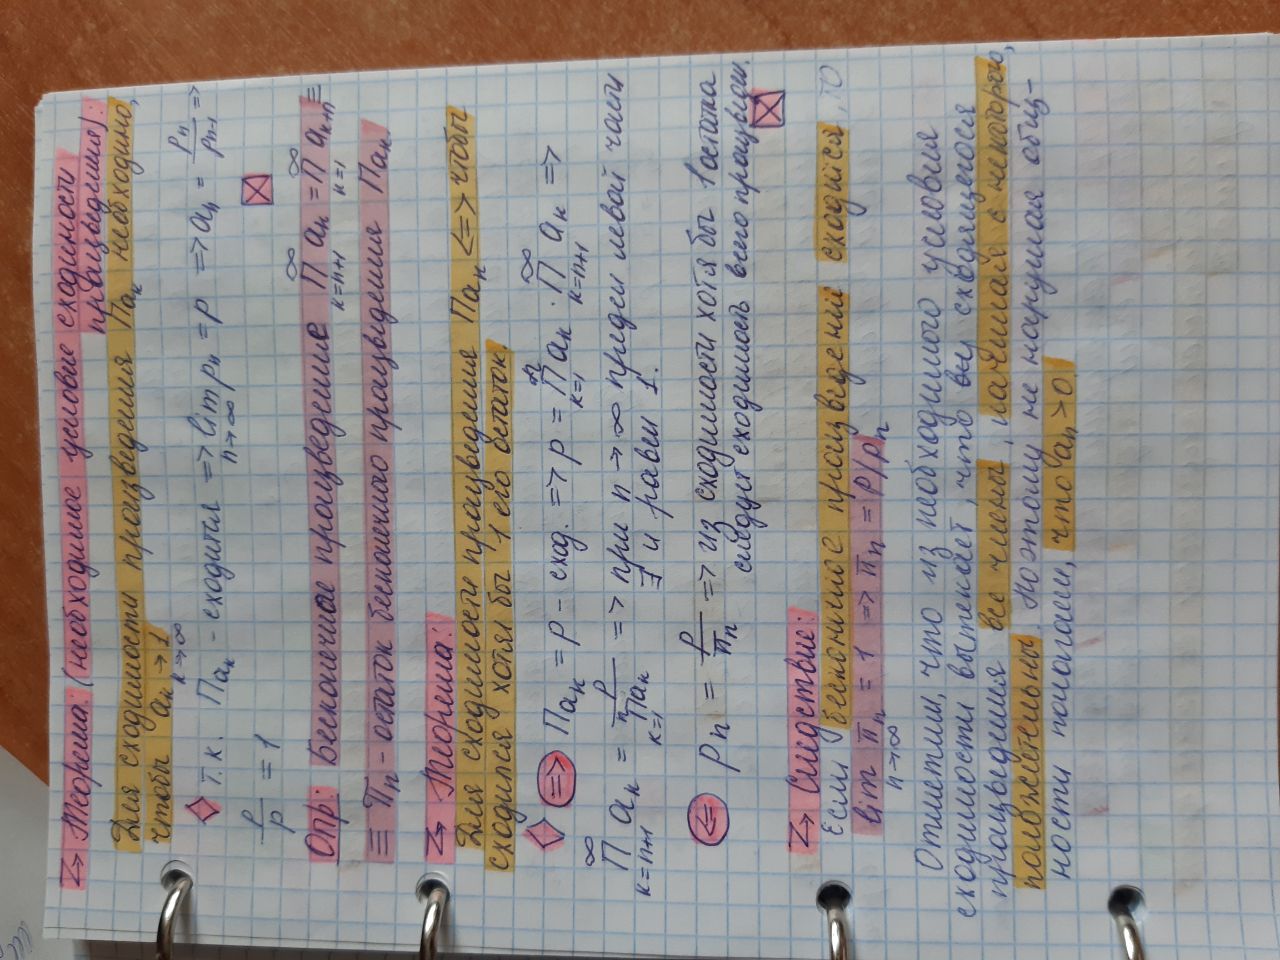 Теорема: (необходимое условие сходимости
произведения):
Для сходимости произведения Πaₖ необходимо,
чтобы aₖ → 1
k→∞
т.к. Πaₖ - сходится => lim pₙ = p => aₙ = pₙ/pₙ₋₁ =>
n→∞
p/p = 1
Опр: Бесконечное произведение ∏_{k=n+1}^{∞} aₖ = ∏_{k=1}^{∞} aₖ₊ₙ ≡
≡ πₙ - остаток бесконечного произведения Πaₖ.
Теорема:
Для сходимости произведения Πaₖ <=> чтобы
сходился хотя бы 1 его остаток.
=> Πaₖ = p - сход. => p = ∏_{k=1}^{n} aₖ · ∏_{k=n+1}^{∞} aₖ =>
∏_{k=n+1}^{∞} aₖ = p/∏_{k=1}^{n} aₖ => при n → ∞ предел левой части
∃ и равен 1.
<= pₙ = p/πₙ => из сходимости хотя бы 1 остатка
следует сходимость всего произведен.
Следствие:
Если бесконечное произведение сходится, то
lim πₙ = 1 => πₙ = P/pₙ
n→∞
Отметим, что из необходимого условия
сходимости вытекает, что у сходящегося
произведения все члены, начиная с некоторого,
положительны. Поэтому не нарушая общ-
ности полагаем, что aₙ > 0.